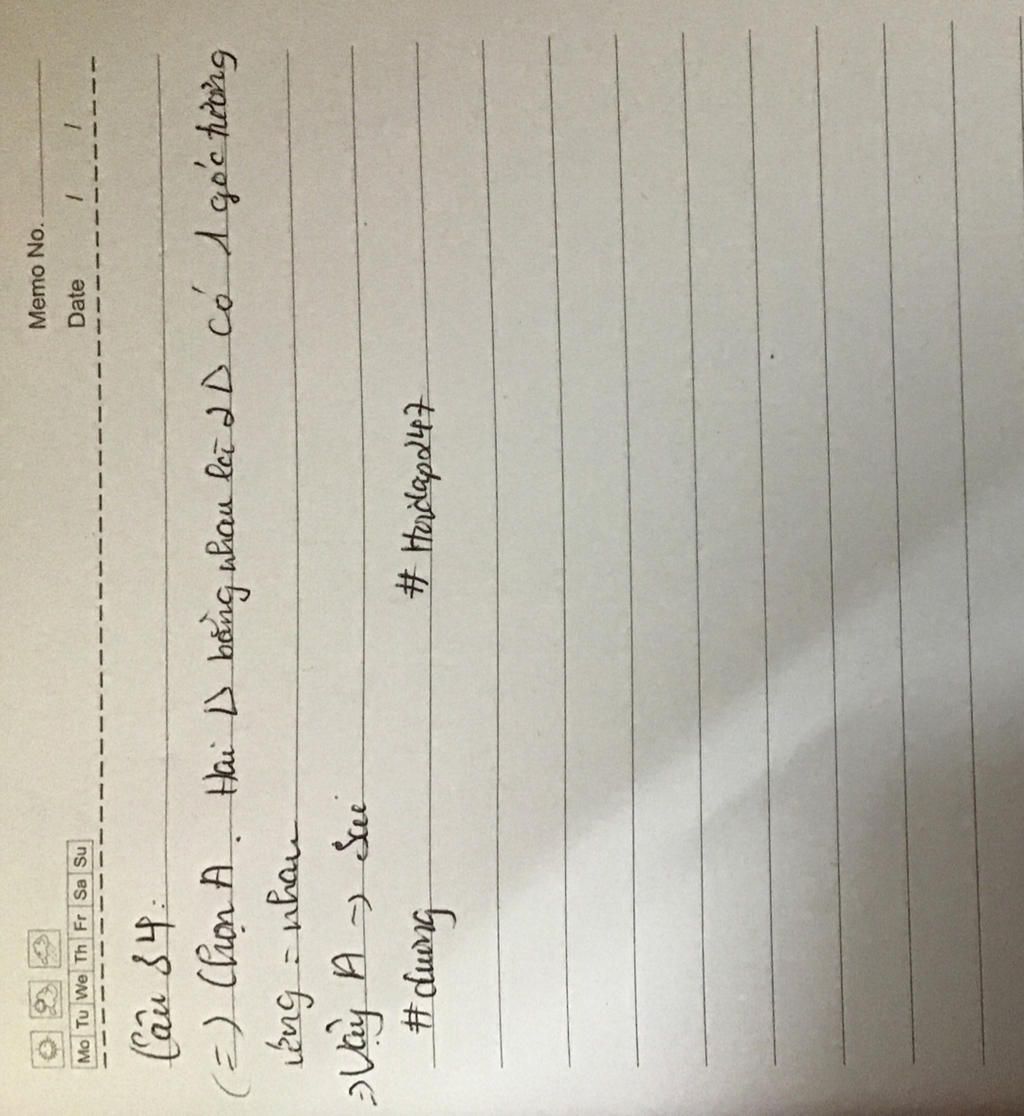 Memo No.
Mo Tu We Th Fr Sa Su
Date / /
Câu 34:
(=) Chọn A. Hai Δ bằng nhau khi 2Δ có 1 góc tương
ứng = nhau
=> Vậy A => Sai
#dung #Hoidap247